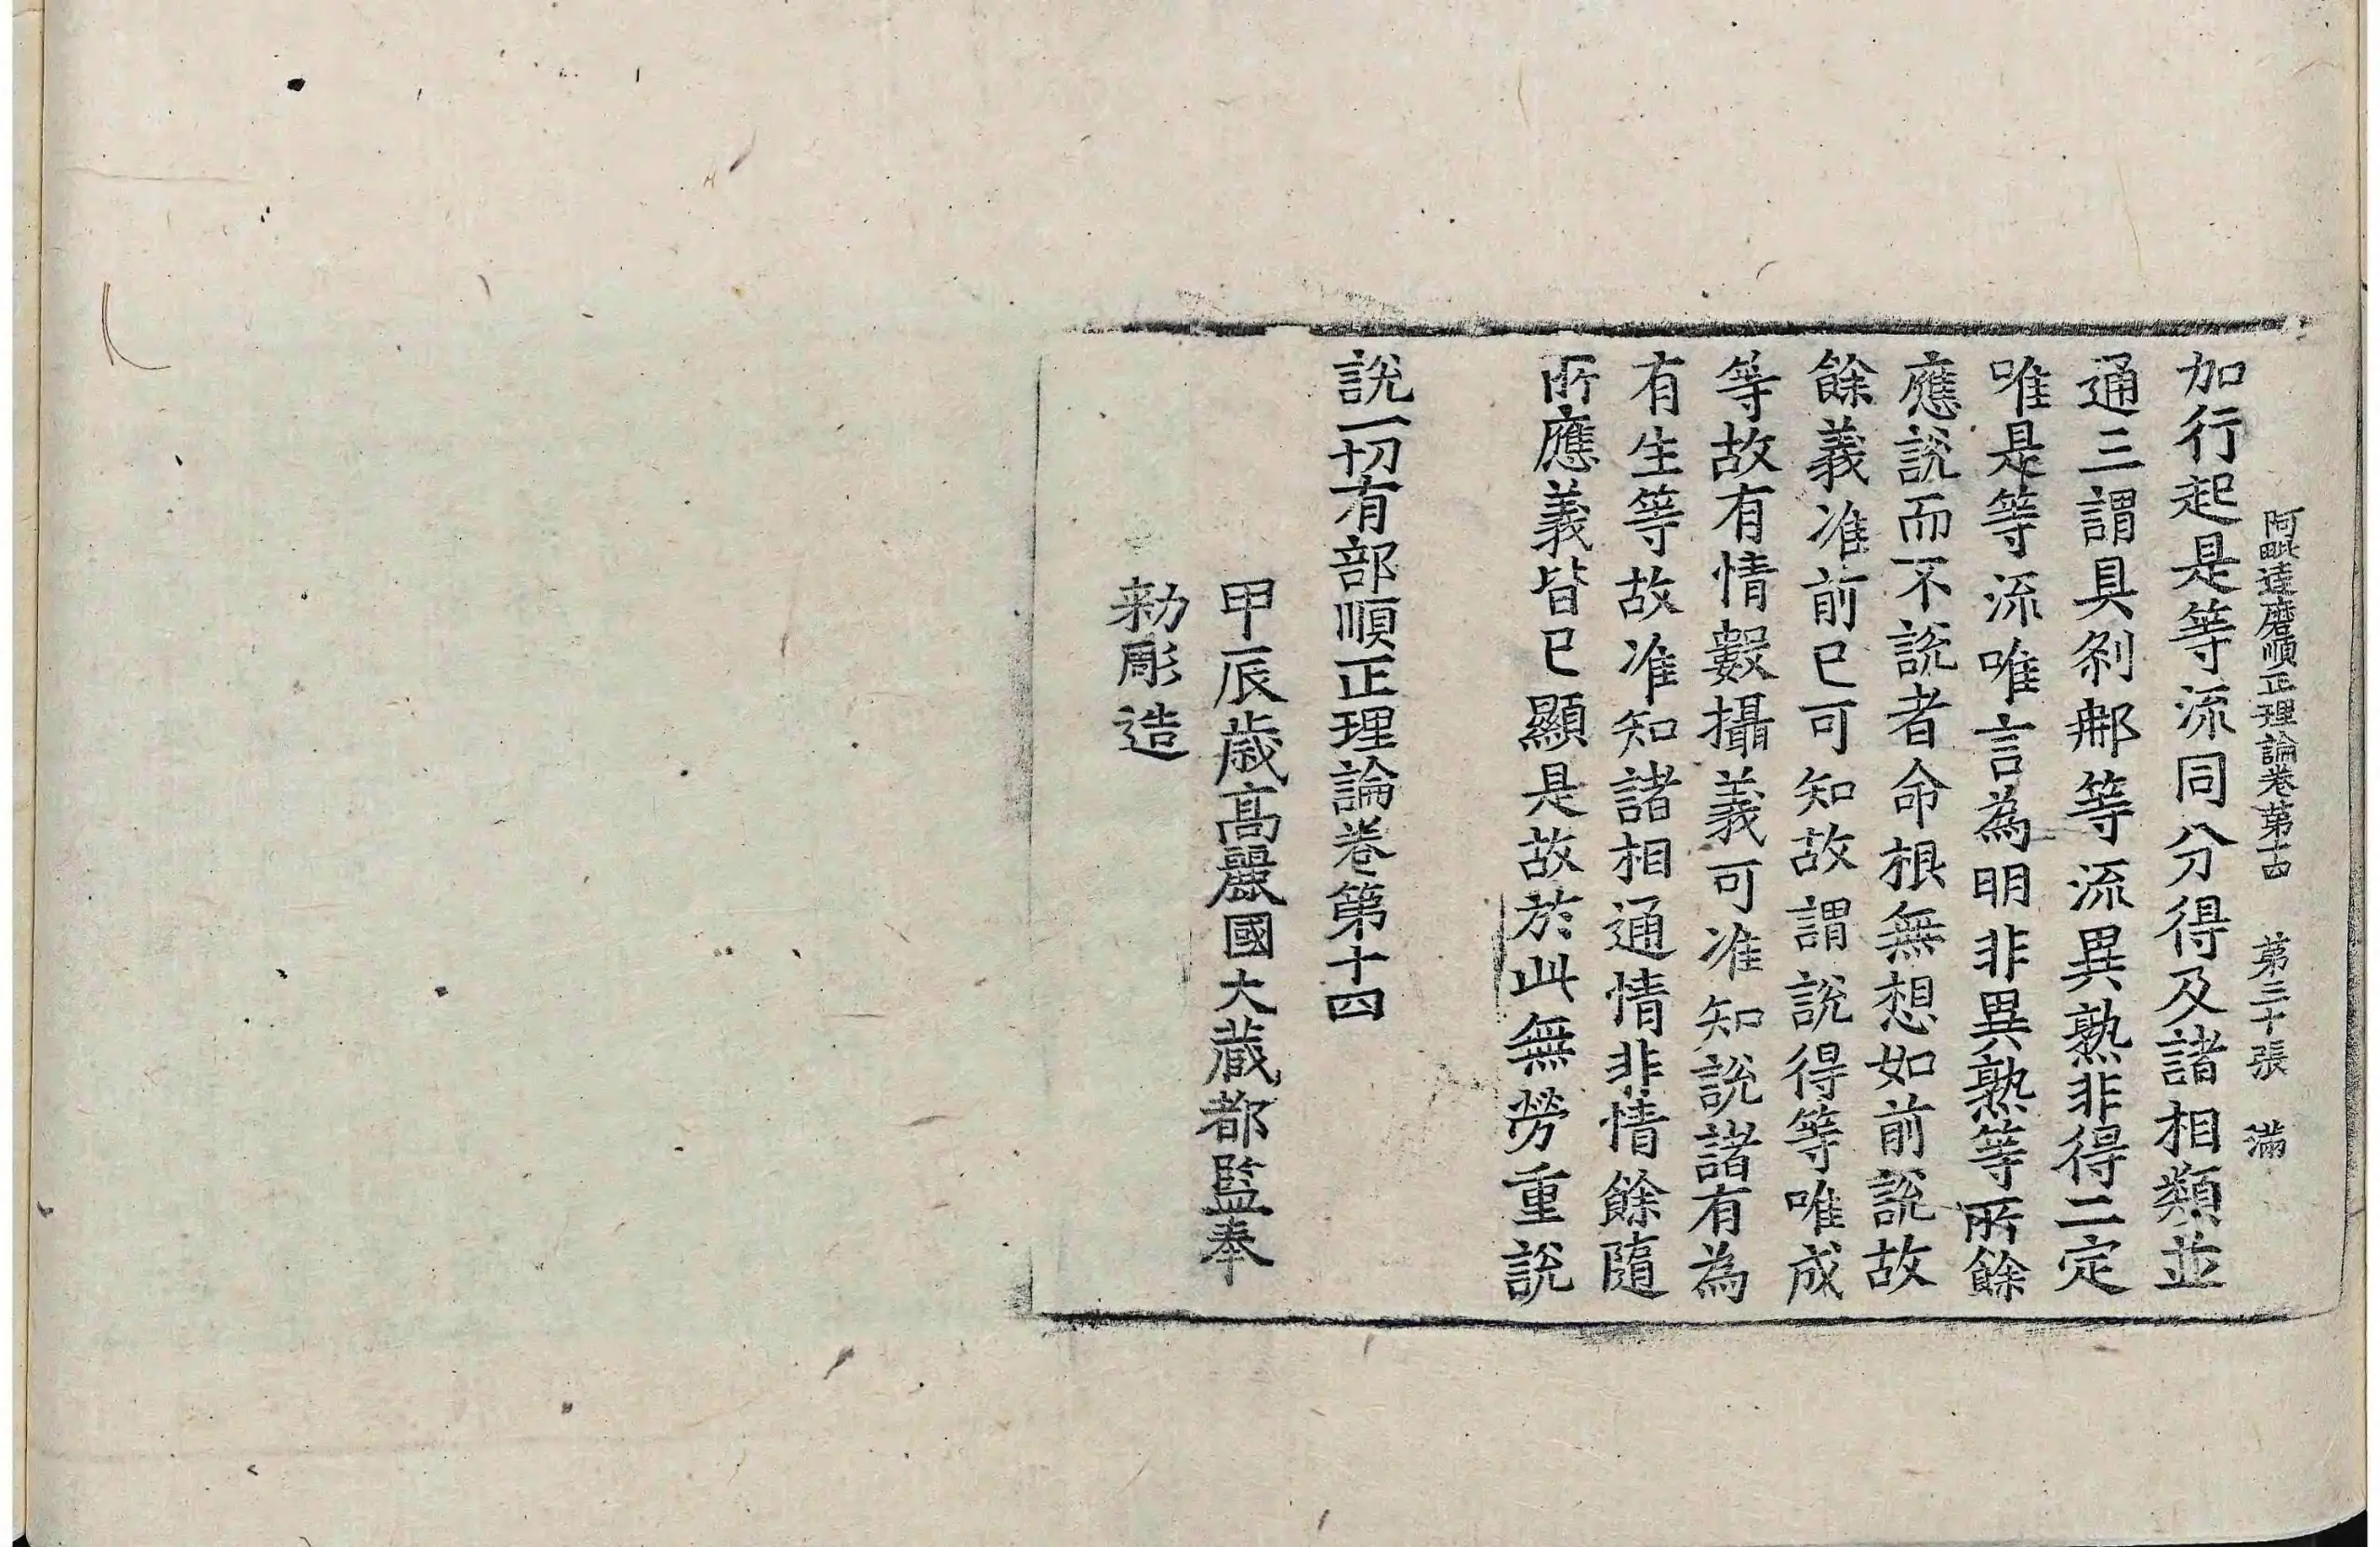 阿毗達磨順正理論卷第十四 第三十張 滿
加行起是等流同分得及諸相類並
通三謂具剎那等流異熟非得二定
唯是等流唯言為明非異熟等所餘
應說而不說者命根無想如前說故
餘義准前已可知故謂說得等唯成
等故有情數攝義可准知說諸有為
有生等故准知諸相通情非情餘隨
所應義皆已顯是故於此無勞重說
說一切有部順正理論卷第十四
甲辰歲高麗國大藏都監奉
勅彫造